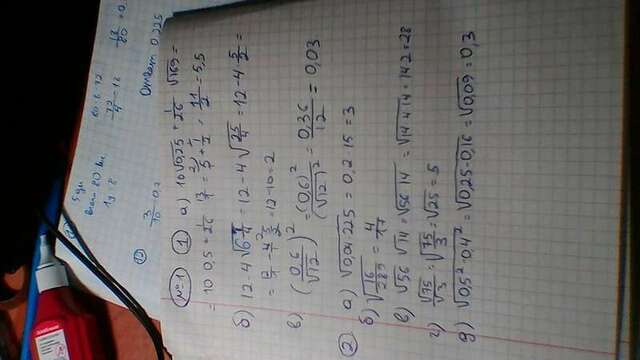 5 дн
всего 80 км
1 д - 8
80 - 8 = 72
72/4 = 18
18/80 = 0
12
3/10 = 0,
Ответ 0,225
№1 1 а) 10√0,25 + 1/26 √169 =
= 10 · 0,5 + 1/26 · 13/1 = 5/1 + 1/2 = 11/2 = 5,5
б) 12 - 4√6 4/4 = 12 - 4√25/4 = 12 - 4 5/2 =
= 12/1 - 4/1 · 5/2 = 12 - 10 = 2
в) (0,6/√12)² = (0,6)²/(√12)² = 0,36/12 = 0,03
2 а) √0,04 · 225 = 0,2 · 15 = 3
б) √16/289 = 4/17
в) √56 √14 = √56 · 14 = √14 · 4 · 14 = 14 · 2 = 28
г) √75/√3 = √75/3 = √25 = 5
д) √0,5² - 0,4² = √0,25 - 0,16 = √0,09 = 0,3